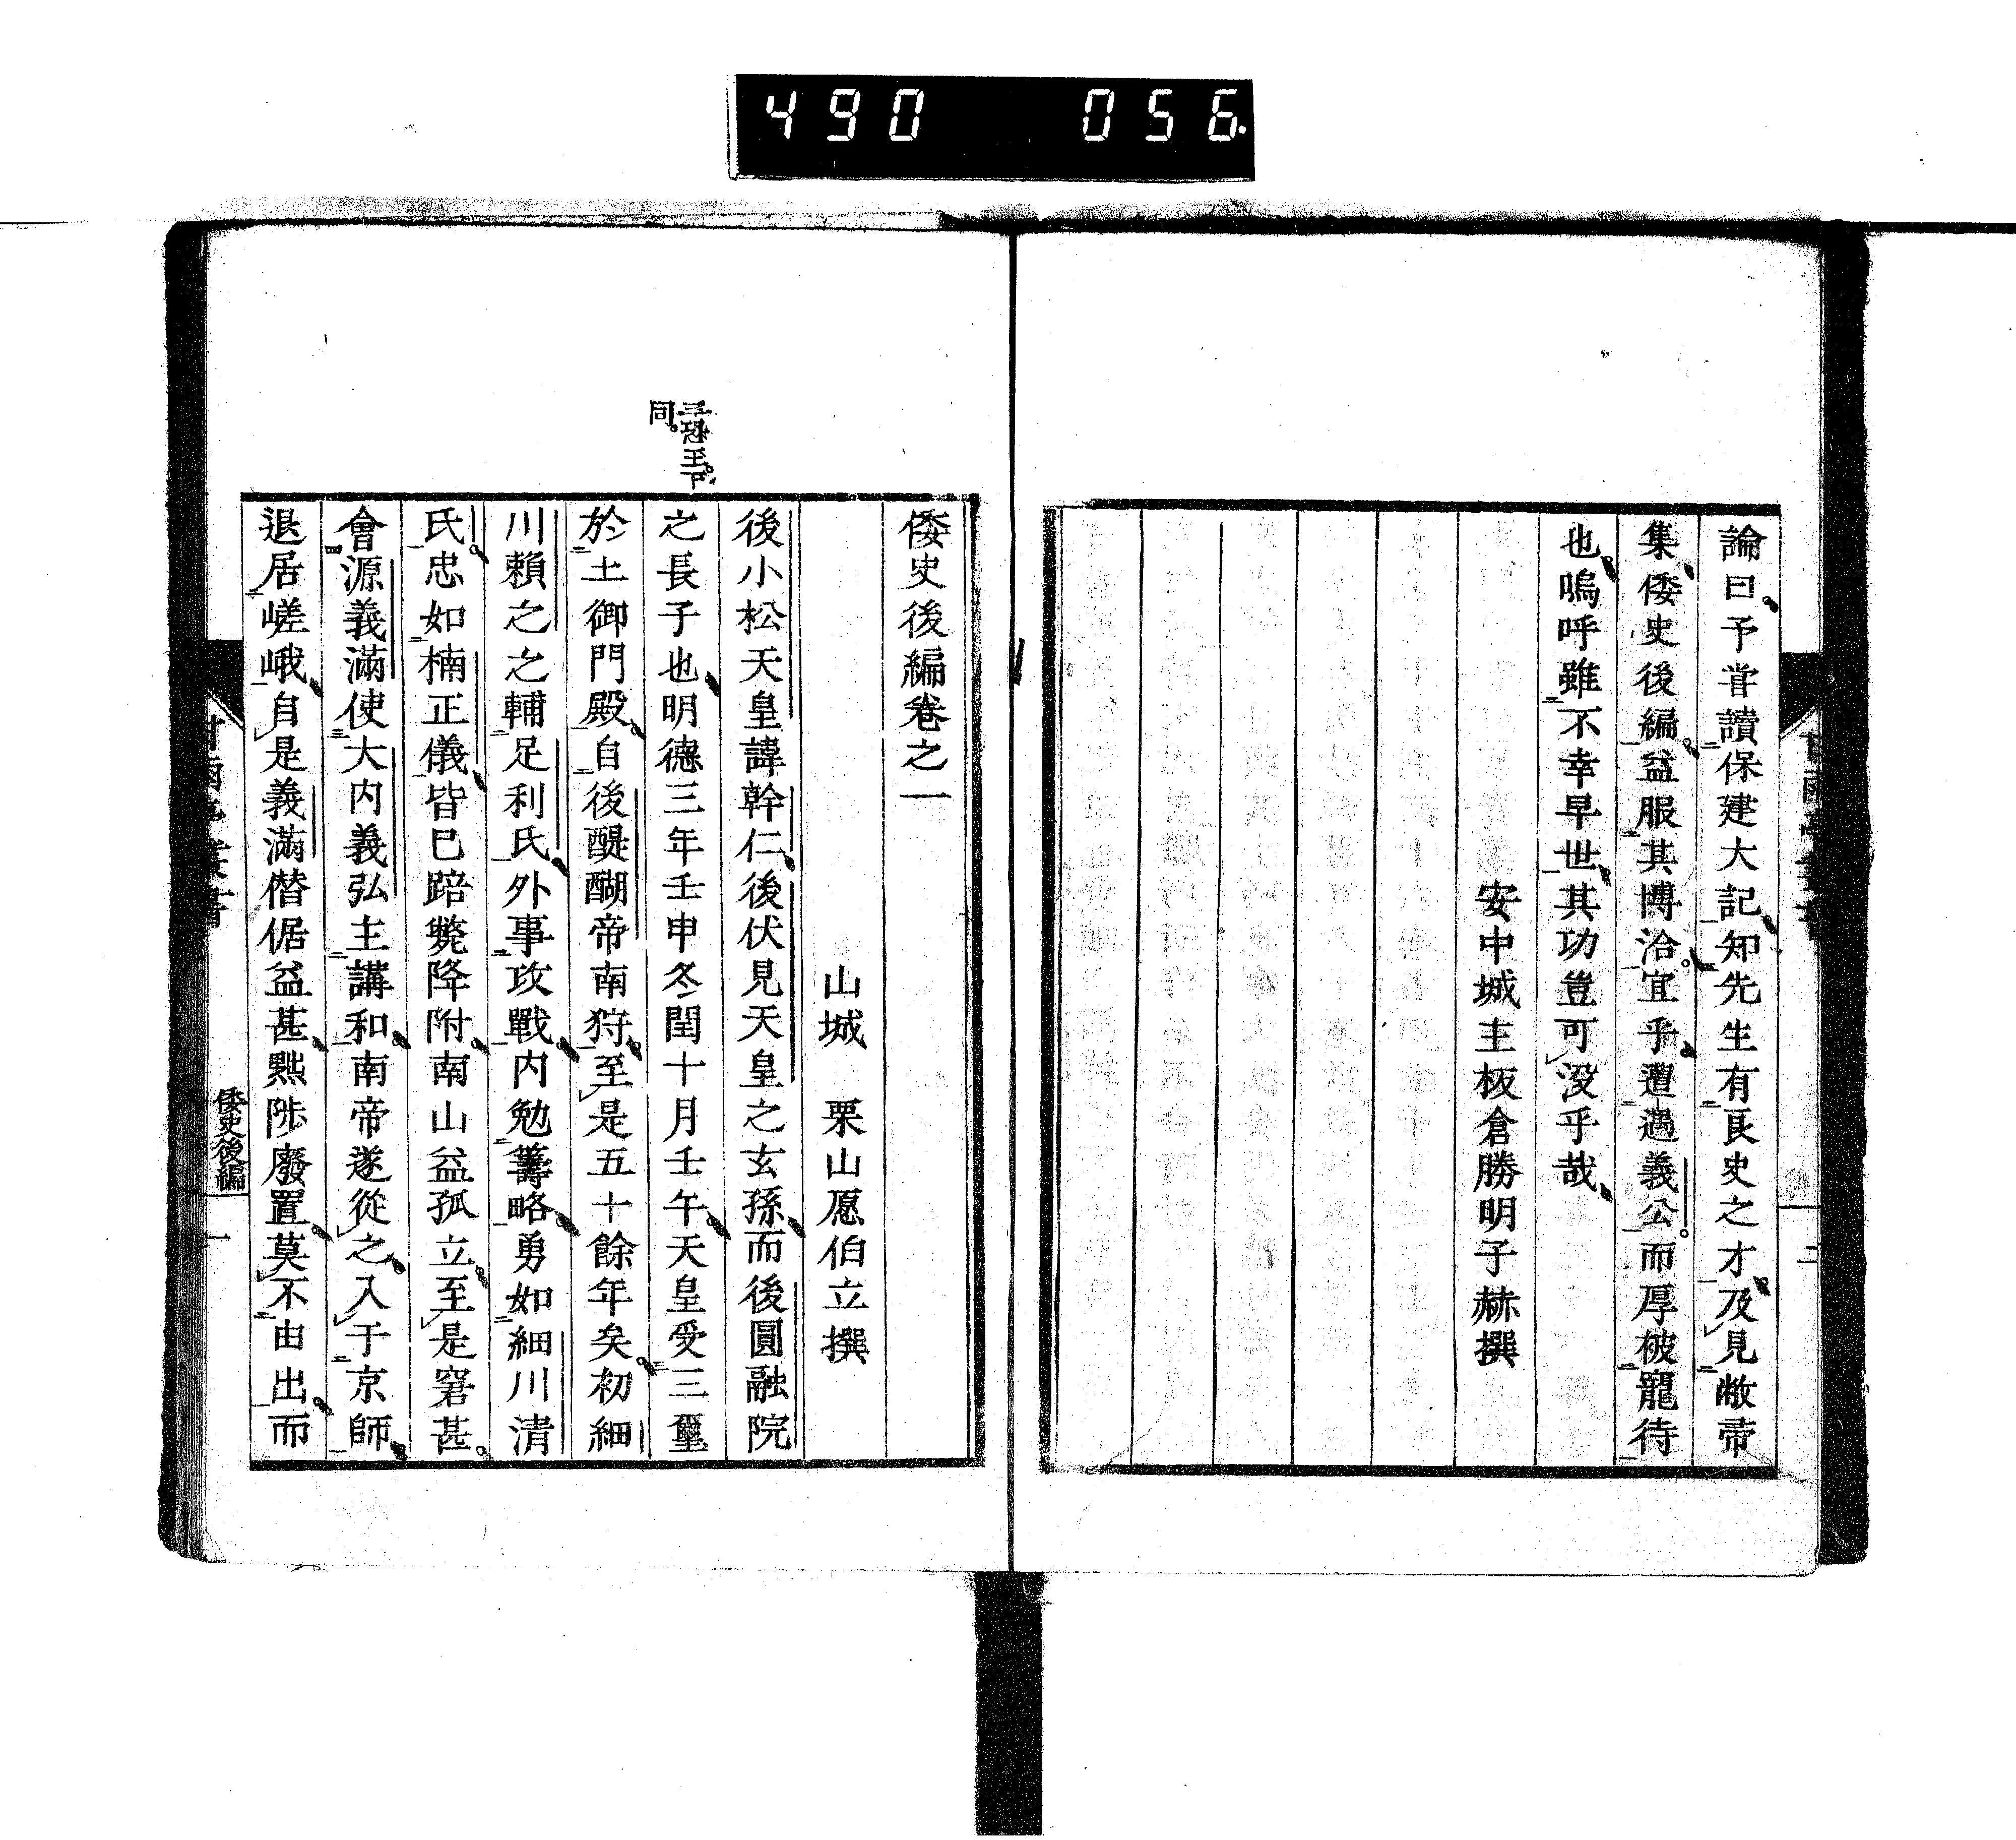 490 056.
論曰予甞讀保建大記知先生有良史之才及見敝帚
集倭史後編益服其博洽宜乎遭遇義公而厚被寵待
也嗚呼雖不幸早世其功豈可没乎哉
安中城主板倉勝明子赫撰
二
倭史後編卷之一
山城 栗山愿伯立撰
後小松天皇諱幹仁後伏見天皇之玄孫而後圓融院
之長子也明德三年壬申冬閏十月壬午天皇受三璽
於土御門殿自後醍醐帝南狩至是五十餘年矣初細
川賴之之輔足利氏外事攻戰内勉籌略勇如細川清
氏忠如楠正儀皆已踣斃降附南山益孤立至是窘甚
會源義滿使大内義弘主講和南帝遂從之入于京師
退居嵯峨自是義滿僭倨益甚黜陟廢置莫不由出而
三恐王下
同
倭史後編
一